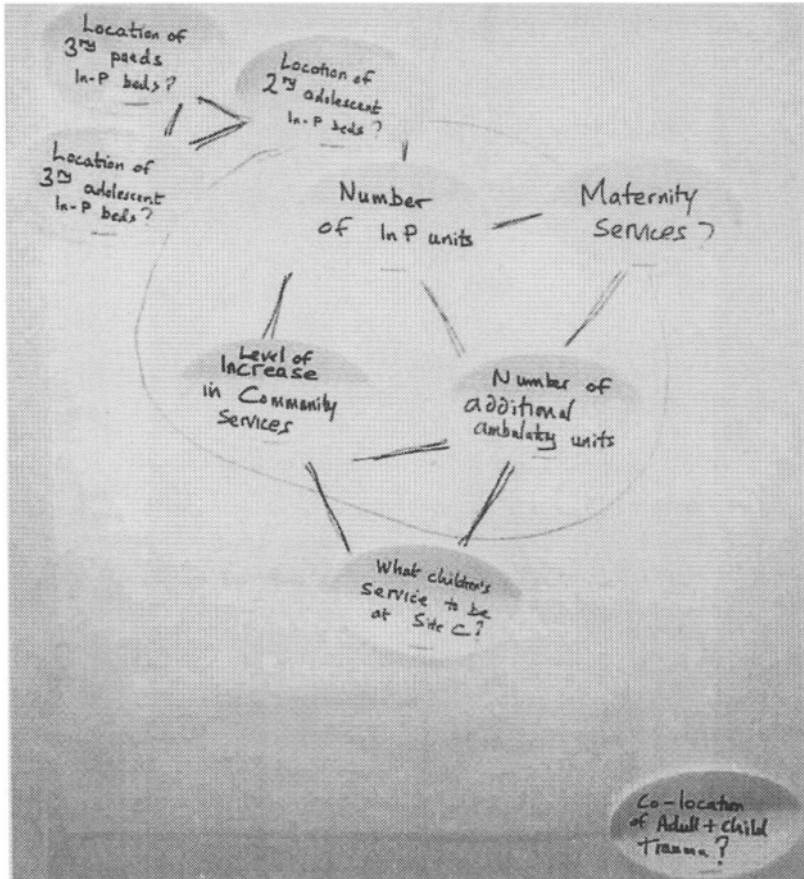 Location of
3ry paeds
In-P beds?
Location of
2ry adolescent
In-P beds?
Location of
3ry adolescent
In-P beds?
Number
of In P units
Maternity
Services?
Level of
Increase
in Community
Services
Number of
additional
ambulatory units
What children's
service to be
at Site C?
Co-location
of Adult + Child
Trauma?